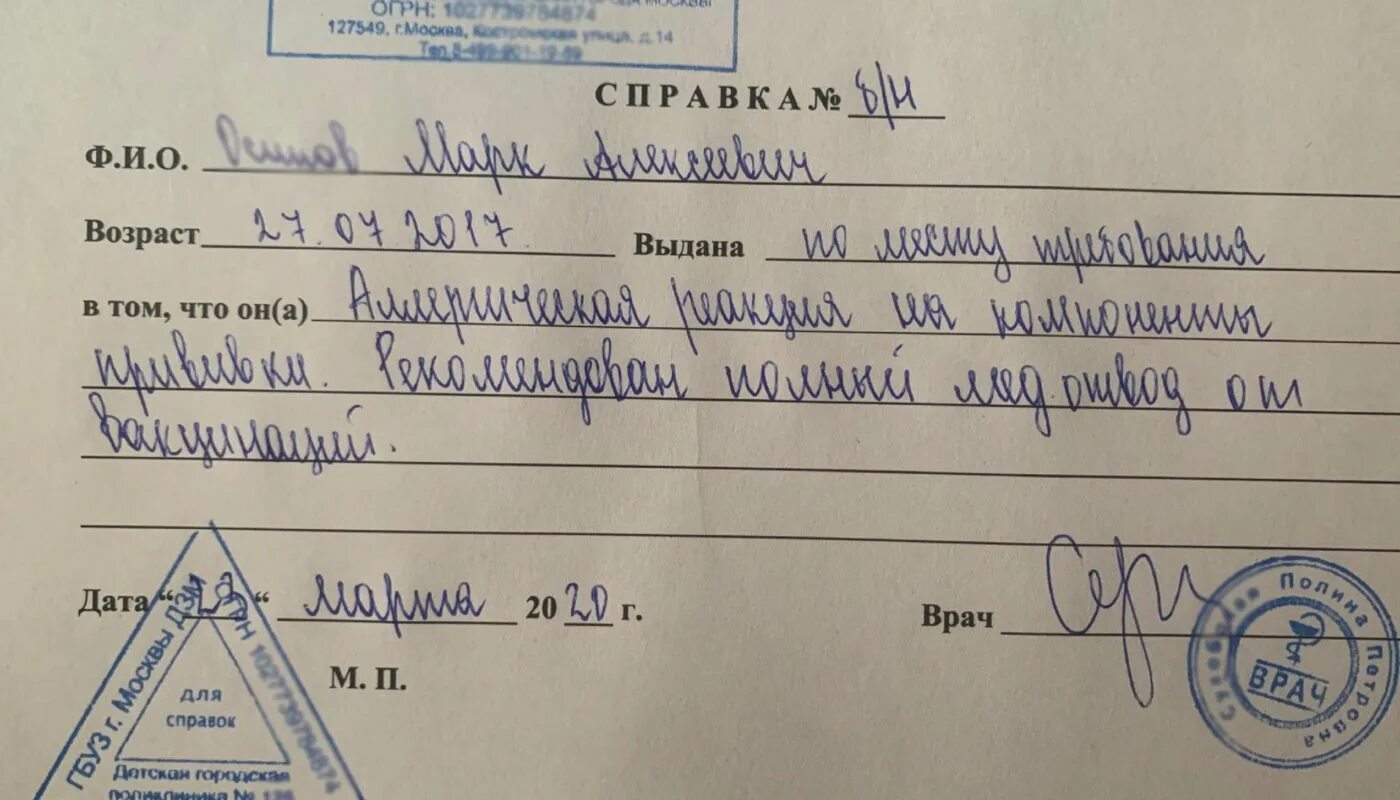 ОГРН: 1027739754874
127549, г.Москва, Костромская улица, д.14
Тел.8-499-901-19-89
СПРАВКА№ б/н
Ф.И.О. Осипов Марк Алексеевич
Возраст 27.07.2017 Выдана по месту требования
в том, что он(а) Аллергическая реакция на компоненты
прививки. Рекомендован полный мед.отвод от
вакцинаций.
Дата “ “ марта 2020 г.
Врач
М. П.
ГБУЗ г. Москвы ДЗМ
ОГРН 1027739754874
для
справок
Детская городская
поликлиника №
Полина Петровна
ВРАЧ